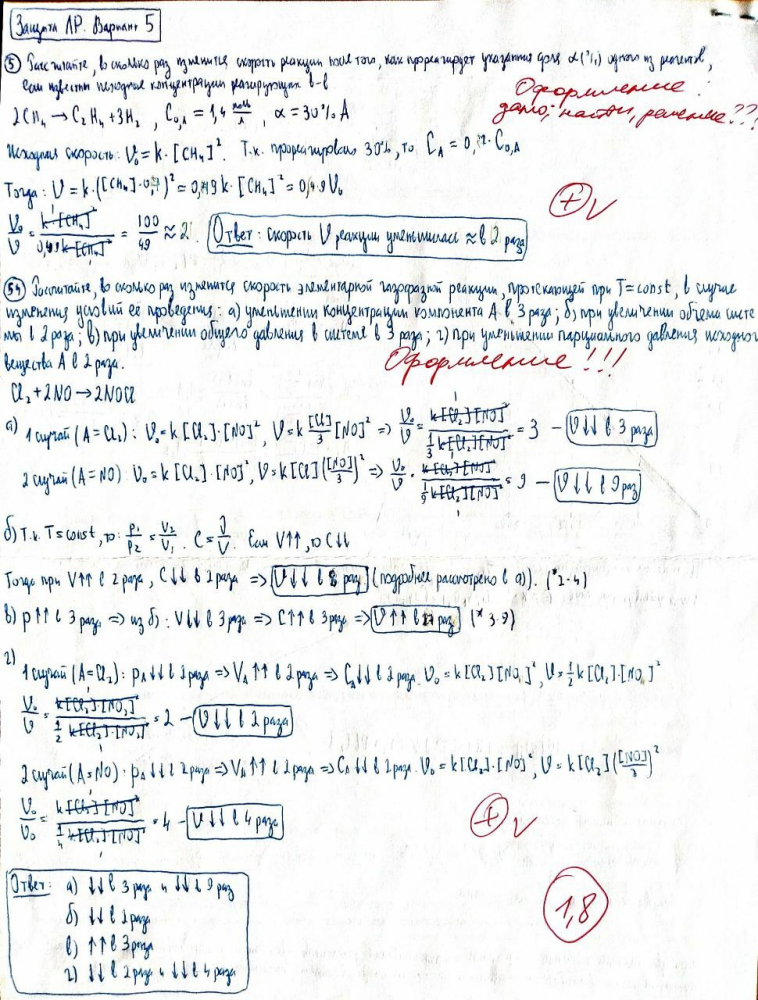 Защита ЛР. Вариант 5
⑤ Рассчитайте, во сколько раз изменится скорость реакции после того, как прореагирует указанная доля α (%) одного из реагентов,
если известны исходные концентрации реагирующих в-в
Оформление!
дано, найти, решение???
2CH₄ → C₂H₂ + 3H₂, C₀,A = 1,4 моль/л, α = 30% A
Исходная скорость: V₀ = k·[CH₄]². Т.к. прореагировало 30%, то C_A = 0,7·C₀,A
Тогда: V = k·([CH₄]·0,7)² = 0,49k·[CH₄]² = 0,49V₀
V₀/V = k·[CH₄]²/0,49k·[CH₄]² = 100/49 ≈ 2. Ответ: скорость V реакции уменьшилась ≈ в 2 раза
+ V
54 Рассчитайте, во сколько раз изменится скорость элементарной газофазной реакции, протекающей при T=const, в случае
изменения условий её проведения: а) уменьшении концентрации компонента A в 3 раза; б) при увеличении объёма систе
мы в 2 раза; в) при увеличении общего давления в системе в 3 раза; г) при уменьшении парциального давления исходного
вещества A в 2 раза.
Оформление!!!
Cl₂ + 2NO → 2NOCl
а) 1 случай (A=Cl₂): V₀ = k[Cl₂]·[NO]², V = k [Cl]/3 [NO]² => V₀/V = k[Cl₂][NO]²/⅓k[Cl₂][NO]² = 3 – V↓↓ в 3 раза
2 случай (A=NO) V₀ = k[Cl₂]·[NO]², V = k[Cl]([NO]/3)² => V₀/V = k[Cl₂][NO]²/⅑k[Cl₂][NO]² = 9 – V↓↓ в 9 раз
б) Т.к. T=const, то: p₁/p₂ = V₂/V₁. C = ν/V. Если V↑↑, то C↓↓
Тогда при V↑↑ в 2 раза, C↓↓ в 2 раза => V↓↓ в 8 раз (подробнее рассмотрено в а)). (*2·4)
в) p↑↑ в 3 раза => из б): V↓↓ в 3 раза => C↑↑ в 3 раза => V↑↑ в 27 раз (* 3·9)
г)
1 случай (A=Cl₂): p_A↓↓ в 2 раза => V_A↑↑ в 2 раза => C_A↓↓ в 2 раза. V₀ = k[Cl₂][NO]², V = ½k[Cl₂]·[NO]²
V₀/V = k[Cl₂]·[NO]²/½k[Cl₂]·[NO]² = 2 – V↓↓ в 2 раза
2 случай (A=NO): p_A↓↓ в 2 раза => V_A↑↑ в 2 раза => C_A↓↓ в 2 раза. V₀ = k[Cl₂]·[NO]², V = k[Cl₂]([NO]/2)²
V₀/V₀ = k[Cl₂][NO]²/¼k[Cl₂][NO]² = 4 – V↓↓ в 4 раза
+ V
Ответ: а) ↓↓ в 3 раза и ↓↓ в 9 раз
б) ↓↓ в 2 раза
в) ↑↑ в 3 раза
г) ↓↓ в 2 раза и ↓↓ в 4 раза
1,8